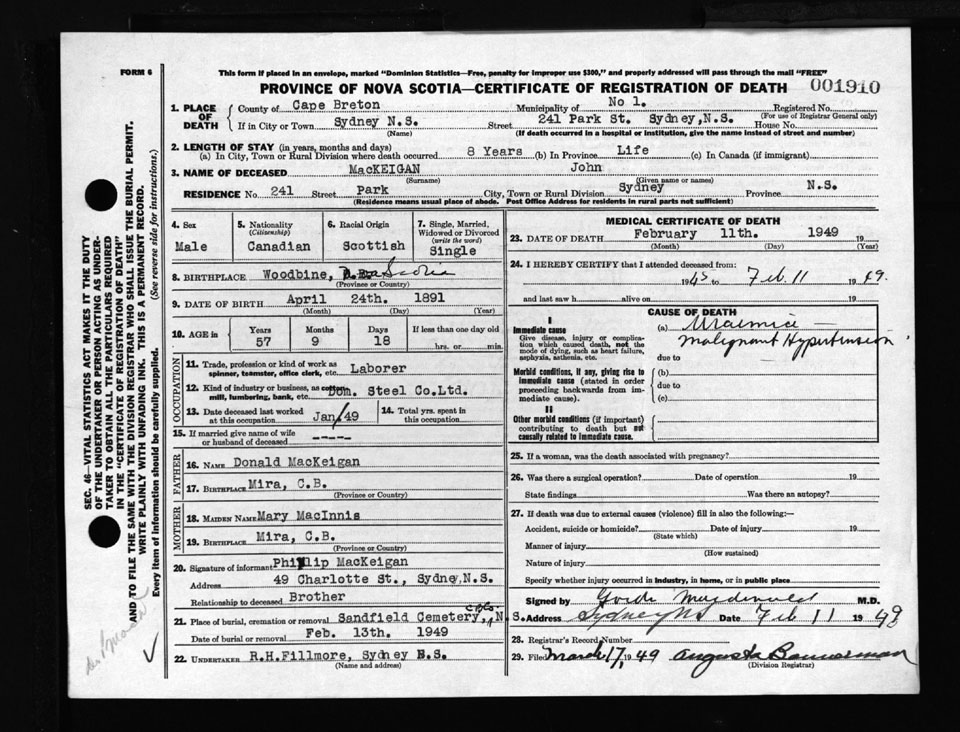 FORM 6
This form if placed in an envelope, marked "Dominion Statistics—Free, penalty for improper use $300," and properly addressed will pass through the mail "FREE"
PROVINCE OF NOVA SCOTIA—CERTIFICATE OF REGISTRATION OF DEATH 001910
1. PLACE OF DEATH
County of Cape Breton Municipality of No 1. Registered No.
(For use of Registrar General only)
If in City or Town Sydney N.S. Street 241 Park St. Sydney,N.S. House No.
(Name) (If death occurred in a hospital or institution, give the name instead of street and number)
2. LENGTH OF STAY (in years, months and days)
(a) In City, Town or Rural Division where death occurred 8 Years (b) In Province Life (c) In Canada (if immigrant)
3. NAME OF DECEASED MacKEIGAN John
(Surname) (Given name or names)
RESIDENCE No. 241 Street Park City, Town or Rural Division Sydney Province N.S.
(Residence means usual place of abode. Post Office Address for residents in rural parts not sufficient)
4. Sex Male
5. Nationality (Citizenship) Canadian
6. Racial Origin Scottish
7. Single, Married, Widowed or Divorced (write the word) Single
8. BIRTHPLACE Woodbine, Scotia
(Province or Country)
9. DATE OF BIRTH April 24th. 1891
(Month) (Day) (Year)
10. AGE in Years Months Days If less than one day old
57 9 18 hrs. or min.
OCCUPATION
11. Trade, profession or kind of work as spinner, teamster, office clerk, etc. Laborer
12. Kind of industry or business, as cotton mill, lumbering, bank, etc. Dom. Steel Co.Ltd.
13. Date deceased last worked at this occupation Jan/49
14. Total yrs. spent in this occupation
15. If married give name of wife or husband of deceased ----
FATHER
16. NAME Donald MacKeigan
17. BIRTHPLACE Mira, C.B.
(Province or Country)
MOTHER
18. MAIDEN NAME Mary MacInnis
19. BIRTHPLACE Mira, C.B.
(Province or Country)
20. Signature of informant Phillip MacKeigan
Address 49 Charlotte St., Sydney,N.S.
Relationship to deceased Brother
21. Place of burial, cremation or removal Sandfield Cemetery, N.S.
Date of burial or removal Feb. 13th. 1949
22. UNDERTAKER R.H.Fillmore, Sydney N.S.
(Name and address)
MEDICAL CERTIFICATE OF DEATH
23. DATE OF DEATH February 11th. 1949 19
(Month) (Day) (Year)
24. I HEREBY CERTIFY that I attended deceased from:
1945 to Feb 11 1949.
and last saw h alive on 19
CAUSE OF DEATH
I
Immediate cause
Give disease, injury or complication which caused death, not the mode of dying, such as heart failure, asphyxia, asthenia, etc.
(a) Uraemia —
Malignant Hypertension
due to
Morbid conditions, if any, giving rise to immediate cause (stated in order proceeding backwards from immediate cause).
(b)
due to
(c)
II
Other morbid conditions (if important) contributing to death but not causally related to immediate cause.
25. If a woman, was the death associated with pregnancy?
26. Was there a surgical operation? Date of operation 19
State findings Was there an autopsy?
27. If death was due to external causes (violence) fill in also the following:—
Accident, suicide or homicide? Date of injury 19
(State which)
Manner of injury
(How sustained)
Nature of injury
Specify whether injury occurred in industry, in home, or in public place
Signed by Macdonald M.D.
Address Sydney NS Date Feb 11 1949
28. Registrar's Record Number
29. Filed March 17, 1949 Augusta Bannerman
(Division Registrar)
SEC. 46—VITAL STATISTICS ACT MAKES IT THE DUTY
OF THE UNDERTAKER OR PERSON ACTING AS UNDER-
TAKER TO OBTAIN ALL THE PARTICULARS REQUIRED
IN THE "CERTIFICATE OF REGISTRATION OF DEATH"
AND TO FILE THE SAME WITH THE DIVISION REGISTRAR WHO SHALL ISSUE THE BURIAL PERMIT.
WRITE PLAINLY WITH UNFADING INK. THIS IS A PERMANENT RECORD.
Every item of information should be carefully supplied. (See reverse side for instructions.)